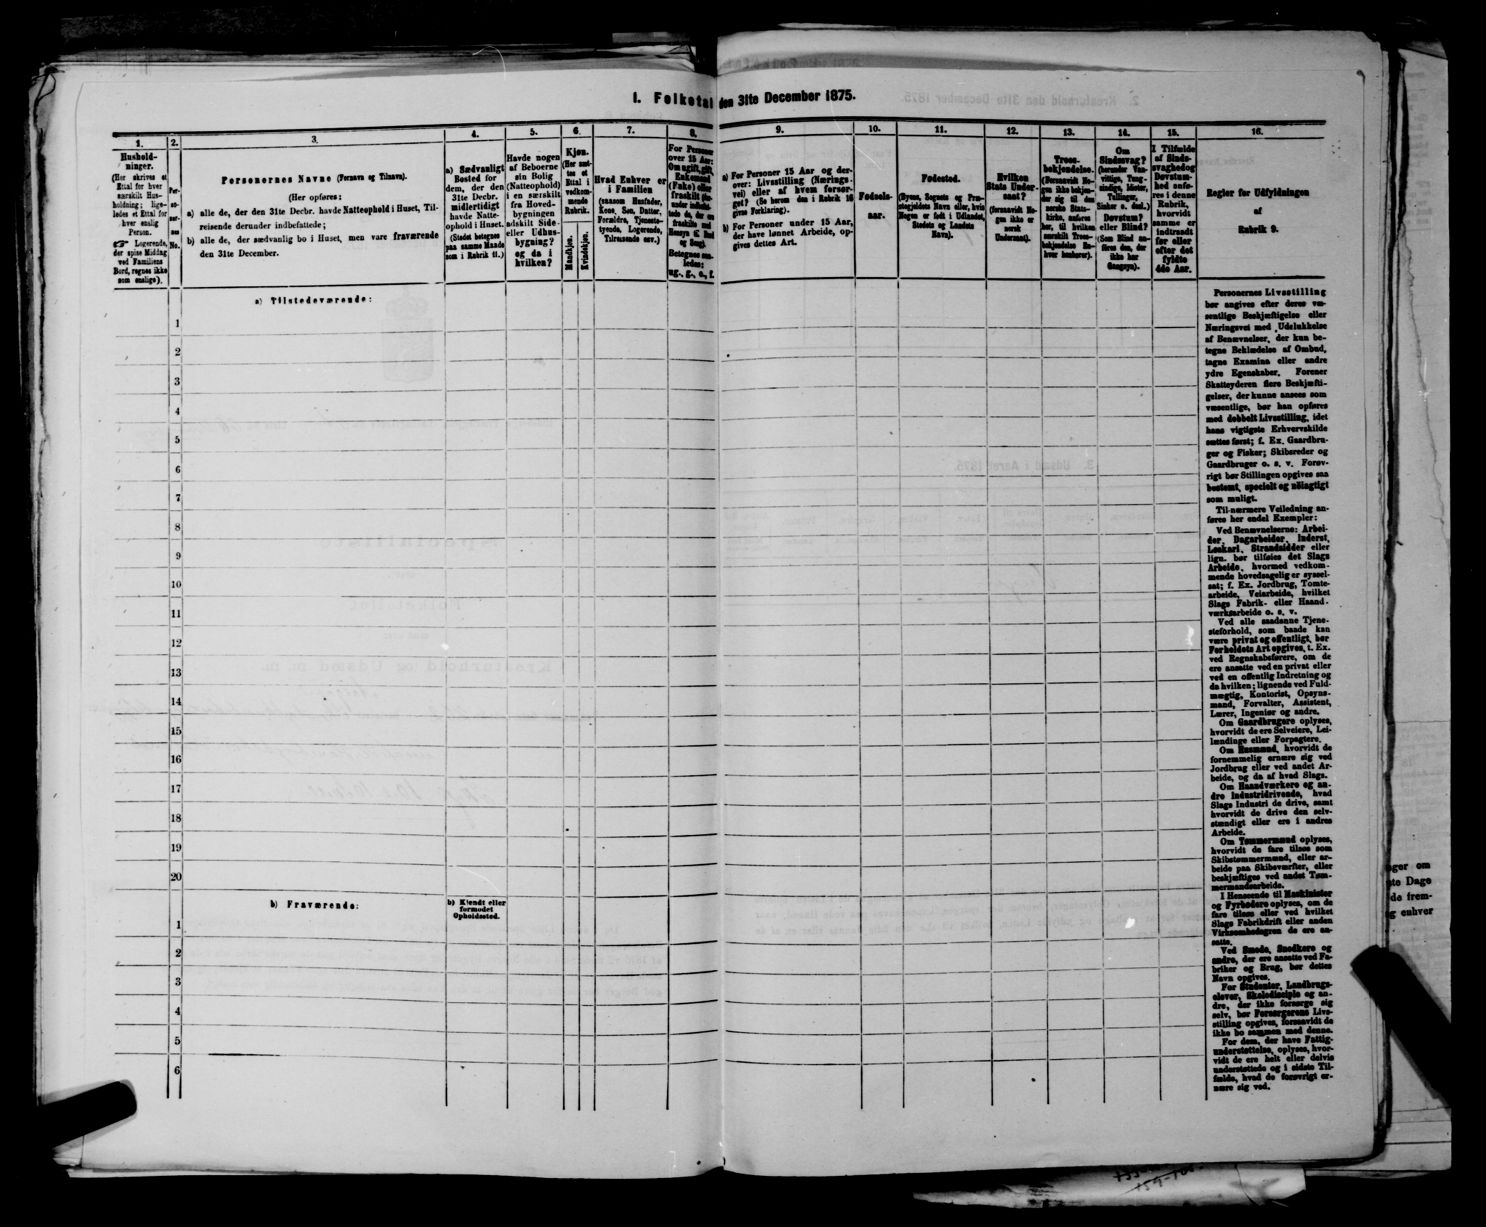 I. Folketal den 31te December 1875.
1.
2.
3.
4.
5.
6.
7.
8.
9.
10.
11.
12.
13.
14.
15.
16.
Hushold-
ninger.
(Her skrives et
Ettal for hver
særskilt Hus-
holdning; lige-
ledes et Ettal for
hver enslig
Person.
☞ Logerende,
der spise Middag
ved Familiens
Bord, regnes ikke
som enslige).
Per-
so-
ner-
nes
No.
Personernes Navne (Fornavn og Tilnavn).
(Her opføres:
a) alle de, der den 31te Decbr. havde Natteophold i Huset, Til-
reisende derunder indbefattede;
b) alle de, der sædvanlig bo i Huset, men vare fraværende
den 31te December.
a) Sædvanligt
Bosted for
dem, der den
31te Decbr.
midlertidigt
havde Natte-
ophold i Huset.
(Stedet betegnes
paa samme Maade
som i Rubrik 11.)
Havde nogen
af Beboerne
sin Bolig
(Natteophold)
i en særskilt
fra Hoved-
bygningen
adskilt Side-
eller Udhus-
bygning?
og da i
hvilken?
Kjøn.
(Her sæt-
tes et
Ettal i
vedkom-
mende
Rubrik.
Mandkjøn.
Kvindekjøn.
Hvad Enhver er
i Familien
(saasom Husfader,
Kone, Søn, Datter,
Forældre, Tjeneste-
tyende, Logerende,
Tilreisende osv.)
For Personer
over 15 Aar:
Om ugift, gift,
Enkemand
(Enke) eller
fraskilt
Betegnes saa-
ledes:
ug., g., e., f.
a) For Personer 15 Aar og der-
over: Livsstilling (Nærings-
vei) eller af hvem forsør-
get? (Se herom den i Rubrik 16
givne Forklaring).
b) For Personer under 15 Aar,
der have lønnet Arbeide, op-
gives dettes Art.
Fødsels-
aar.
Fødested.
(Byens, Sognets og Præ-
stegjeldets Navn eller, hvis
Nogen er født i Udlandet,
Stedets og Landets
Navn).
Hvilken
Stats Under-
saat?
(forsaavidt No-
gen ikke er
norsk
Undersaat).
Troes-
bekjendelse.
(Forsaavidt No-
gen ikke bekjen-
der sig til den
norske Stats-
kirke, anføres
her, til hvilken
særskilt Troes-
bekjendelse En-
hver henhører).
Om
Sindssvag?
(herunder Van-
vittige, Tung-
sindige, Idioter,
Tullinger,
Sinker o. desl.)
Døvstum?
eller Blind?
(Som Blind an-
føres den, der
ikke har
Gangsyn).
I Tilfælde
af Sinds-
svaghed og
Døvstum-
hed anfø-
res i denne
Rubrik,
hvorvidt
samme er
indtraadt
før eller
efter det
fyldte
4de Aar.
Regler for Udfyldningen
af
Rubrik 9.
a) Tilstedeværende:
1
2
3
4
5
6
7
8
9
10
11
12
13
14
15
16
17
18
19
20
b) Fraværende:
b) Kjendt eller
formodet
Opholdssted.
1
2
3
4
5
6
Personernes Livsstilling
bør angives efter deres væ-
sentlige Beskjæftigelse eller
Næringsvei med Udelukkelse
af Benævnelser, der kun be-
tegne Beklædelse af Ombud,
tagne Examina eller andre
ydre Egenskaber. Forener
Skatteyderen flere Beskjæfti-
gelser, der kunne ansees som
væsentlige, bør han opføres
med dobbelt Livsstilling, idet
hans vigtigste Erhvervskilde
sættes først; f. Ex. Gaardbru-
ger og Fisker; Skibsreder og
Gaardbruger o. s. v. Forøv-
rigt bør Stillingen opgives saa
bestemt, specielt og nøiagtigt
som muligt.
Til nærmere Veiledning an-
føres her endel Exempler:
Ved Benævnelserne: Arbei-
der, Dagarbeider, Inderst,
Løskarl, Strandsidder eller
lign. bør tilføies det Slags
Arbeide, hvormed vedkom-
mende hovedsagelig er syssel-
sat; f. Ex. Jordbrug, Tomte-
arbeide, Veiarbeide, hvilket
Slags Fabrik- eller Haand-
værksarbeide o. s. v.
Ved alle saadanne Tjene-
steforhold, som baade kan
være privat og offentligt, bør
Forholdets Art opgives, t. Ex.
ved Regnskabsførere, om de
ere ansatte ved en privat eller
ved en offentlig Indretning og
da hvilken; lignende ved Fuld-
mægtig, Kontorist, Opsyns-
mand, Forvalter, Assistent,
Lærer, Ingeniør og andre.
Om Gaardbrugere oplyses,
hvorvidt de ere Selveiere, Lei-
lændinge eller Forpagtere.
Om Husmænd, hvorvidt de
fornemmelig ernære sig ved
Jordbrug eller ved andet Ar-
beide, og da af hvad Slags.
Om Haandværkere og an-
dre Industridrivende, hvad
Slags Industri de drive, samt
hvorvidt de drive den selv-
stændigt eller ere i andres
Arbeide.
Om Tømmermænd oplyses,
hvorvidt de fare tilsøs som
Skibstømmermænd, eller ar-
beide paa Skibsværfter, eller
beskjæftiges ved andet Tøm-
mermandsarbeide.
I Henseende til Maskinister
og Fyrbødere oplyses, om de
fare tilsøs eller ved hvilket
Slags Fabrikdrift eller anden
Virksomhedsgren de ere an-
satte.
Ved Smede, Snedkere og
andre, der ere ansatte ved Fa-
briker og Brug, bør dettes
Navn opgives.
For Studenter, Landbrugs-
elever, Skoledisciple og an-
dre, der ikke forsørge sig
selv, bør Forsørgerens Livs-
stilling opgives, forsaavidt de
ikke bo sammen med denne.
For dem, der have Fattig-
understøttelse, oplyses, hvor-
vidt de ere helt eller delvis
understøttede og i sidste Til-
fælde, hvad de forøvrigt er-
nære sig ved.
om
Dage
de frem-
enhver